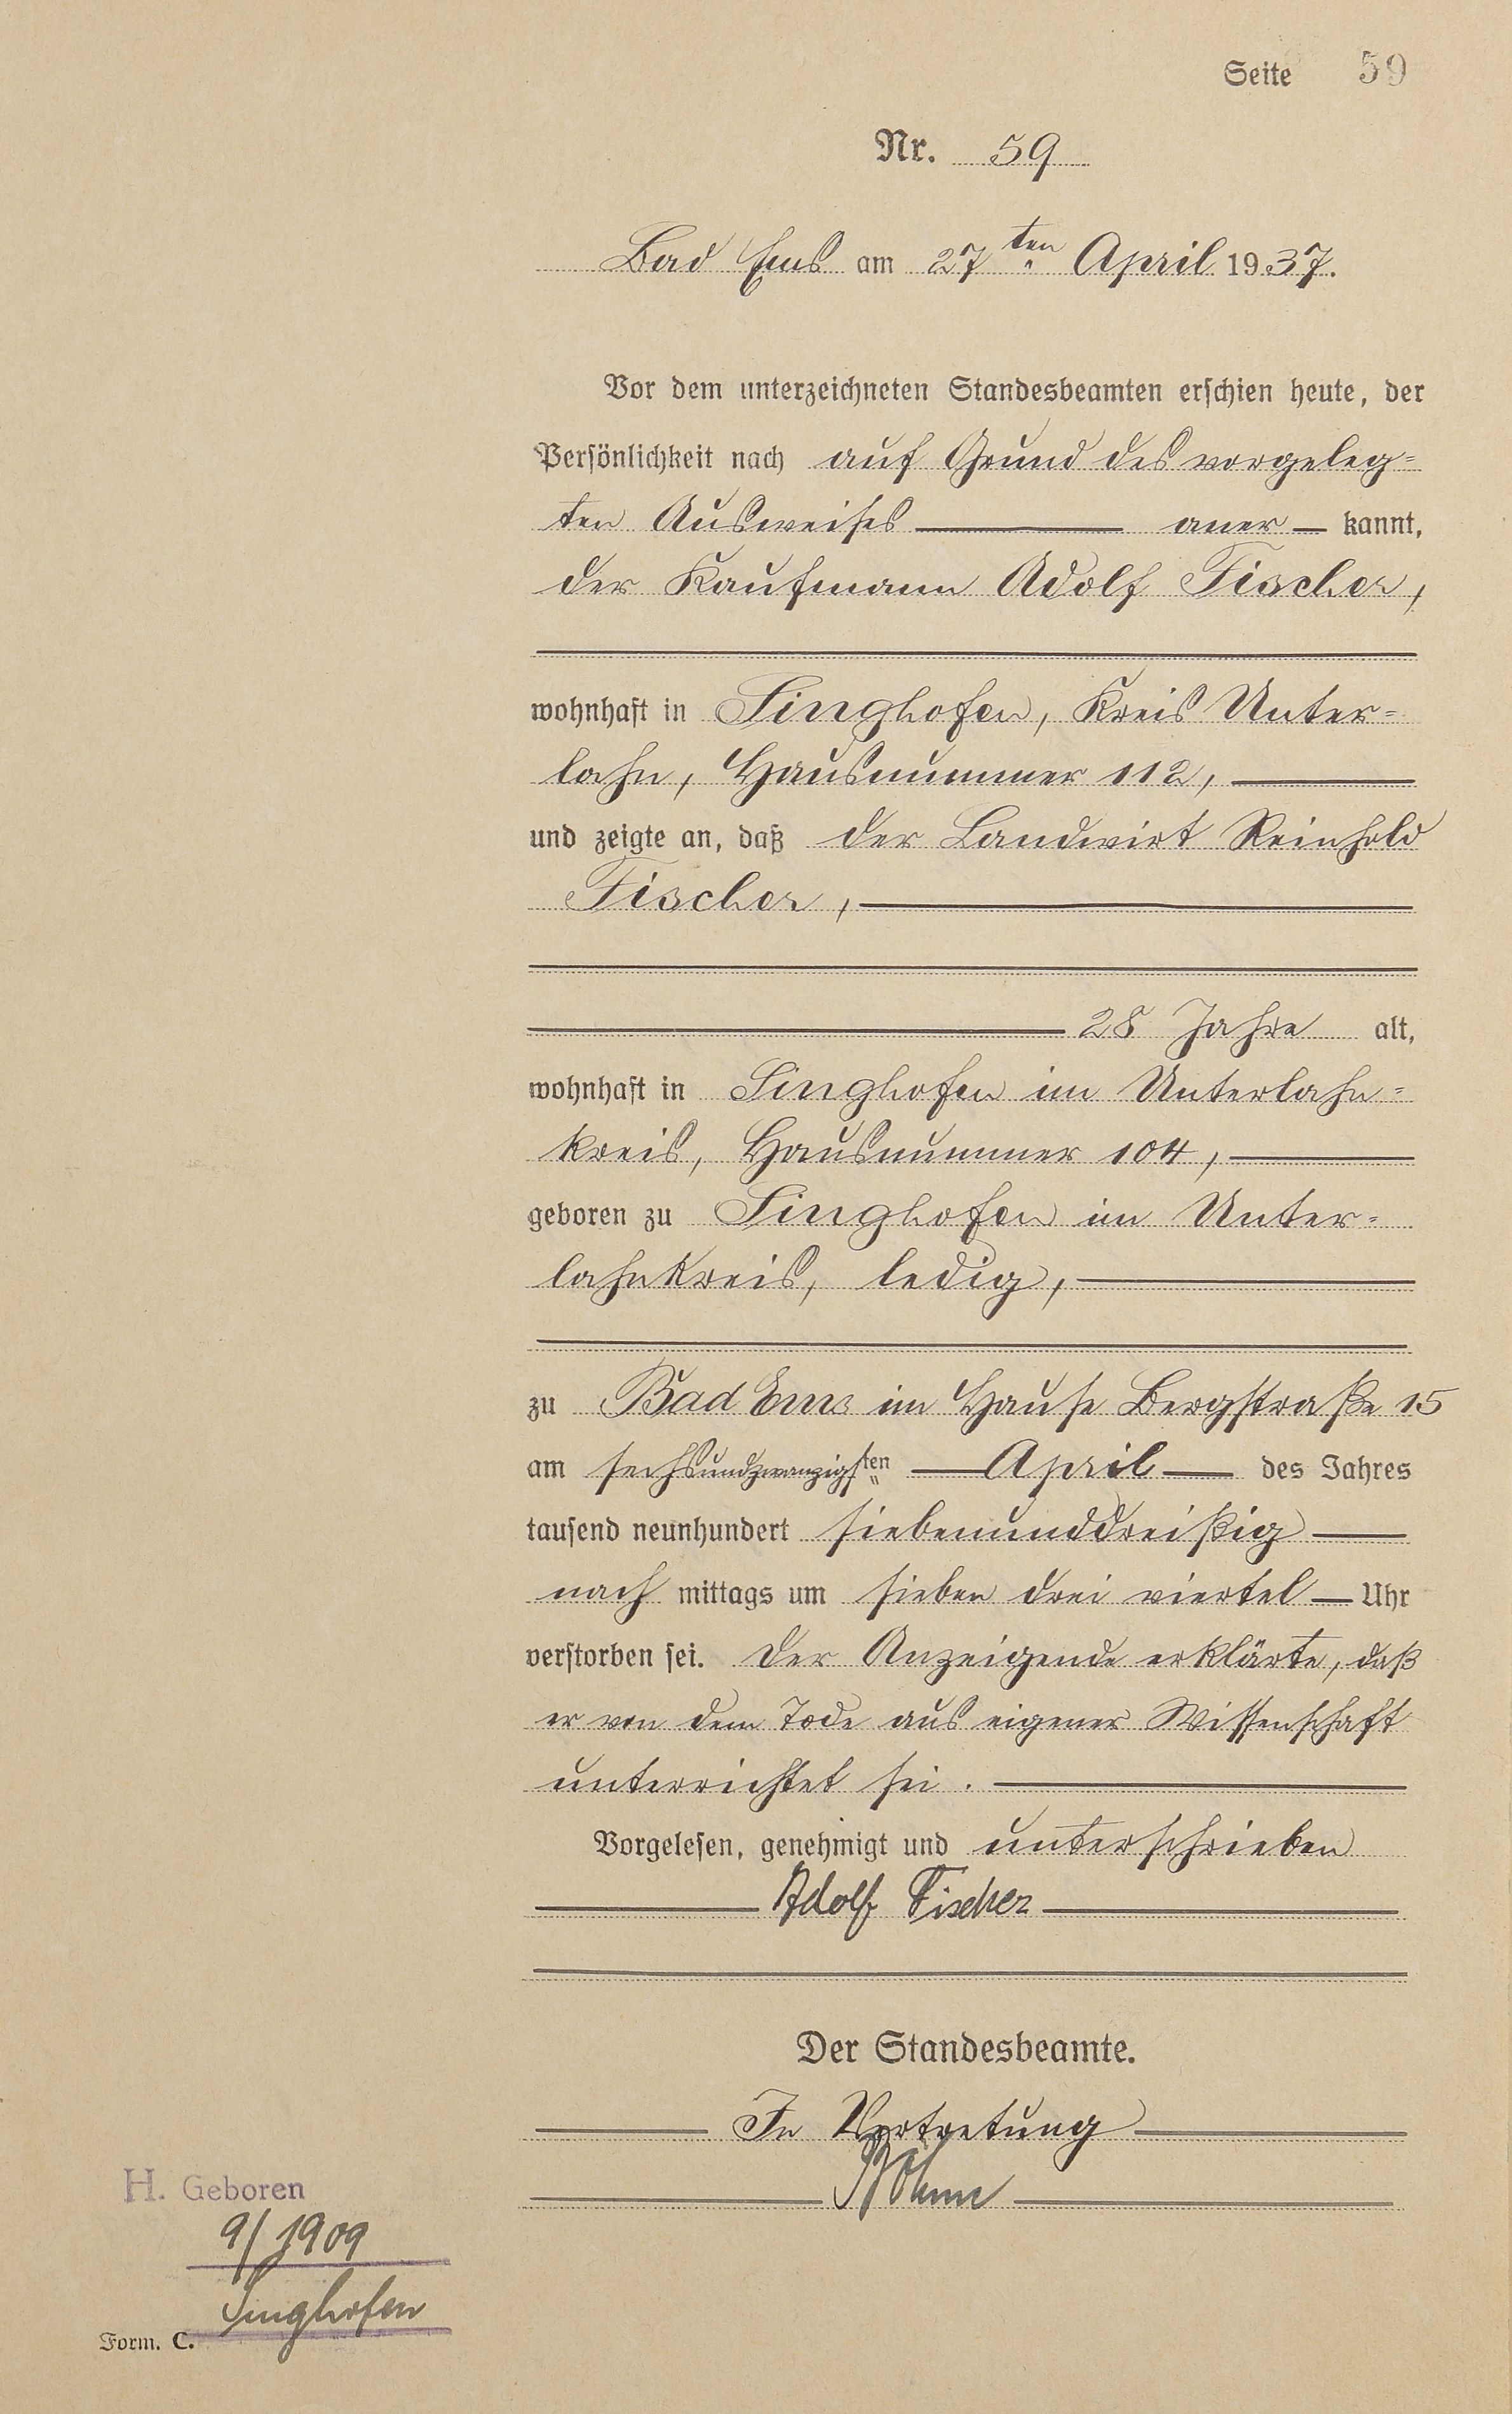 Seite 59
Nr. 59
Bad Ems am 27ten April 1937.
Vor dem unterzeichneten Standesbeamten erschien heute, der
Persönlichkeit nach auf Grund des vorgeleg-
ten Ausweises aner- kannt,
der Kaufmann Adolf Fischer,
wohnhaft in Singhofen, Kreis Unter-
lahn, Hausnummer 112,
und zeigte an, daß der Landwirt Reinhold
Fischer,
28 Jahre alt,
wohnhaft in Singhofen im Unterlahn-
kreis, Hausnummer 104,
geboren zu Singhofen im Unter-
lahnkreis, ledig,
zu Bad Ems im Hause Bergstraße 15
am sechsundzwanzigsten April des Jahres
tausend neunhundert siebenunddreißig
nach mittags um sieben drei viertel Uhr
verstorben sei. Der Anzeigende erklärte, daß
er von dem Tode aus eigener Wissenschaft
unterrichtet sei.
Vorgelesen, genehmigt und unterschrieben
Adolf Fischer
Der Standesbeamte.
In Vertretung
H. Geboren
9/1909
Singhofen
Form. C.